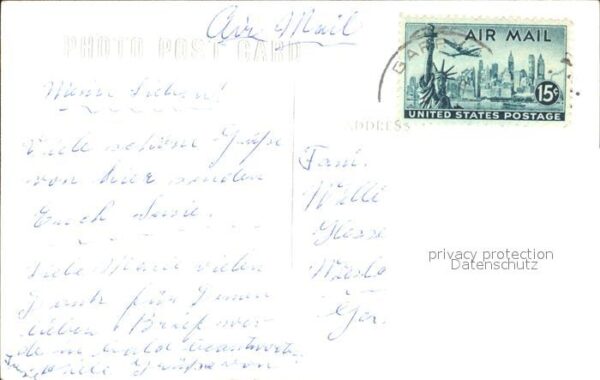 Air Mail
PHOTO POST CARD
AIR MAIL
15¢
UNITED STATES POSTAGE
GARY
ADDRESS
Meine Lieben!
Viele schöne Grüße
von hier senden
Euch
Liebe Marie vielen
Dank für
lieben Brief wer
de in balde beantworten
viele Grüße von
Fam.
Willi
privacy protection
Datenschutz
Ger.